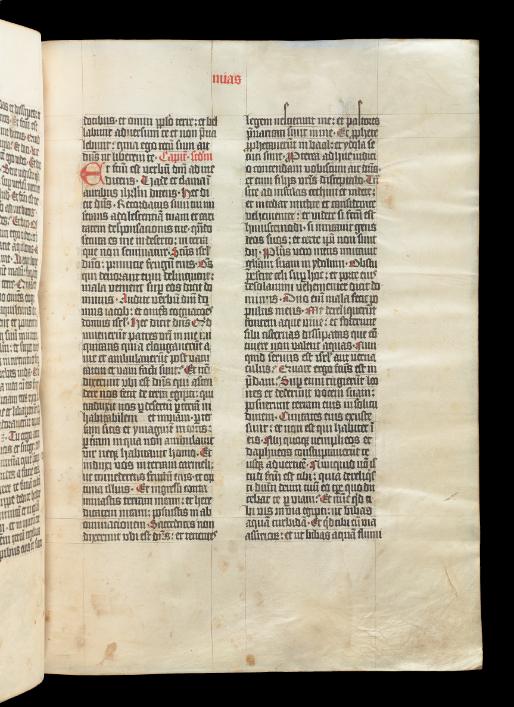 mias
docibus: et omni pplo terre: et bel
labunt adversum te et non preva
lebunt: quia ego tecum sum ait
dns ut liberem te. Capitm. scdm
Et fcm est verbu dni ad me
dicens. Vade et clama i
auribus ihrlm dicens. Hec di
cit dns. Recordatus sum tui mi
serans adolescentiam tuam et cari
tatem desponsationis tue. qndo
secuta es me in deserto: in terra
que non seminatur. Scus isrl
dno: primitie frugum eius. Os
qui devorant eum delinquunt:
mala venient sup eos dicit do
minus. Audite verbu dni do
mus iacob: et omnes cognacoes
domus isrl. Hec dicit dns. Qd
invenerunt patres vri in me ini
quitatis quia elongaverunt a
me et ambulaverunt post vani
tatem et vani facti sunt. Et no
dixerunt ubi est dns qui ascen
dere nos fecit de terra egipti: qui
traduxit nos p desertu p terra in
habitabilem et inviam. p ter
ram sitis et ymagine mortis:
p terram in qua non ambulavit
vir neqz habitavit homo. Et
induxi vos in terram carmeli:
ut comederetis fructu eius et op
tima illius. Et ingressi conta
minastis terram meam: et here
ditatem meam posuistis in ab
ominationem. Sacerdotes non
dixerunt ubi est dns: et tenentes
legem nescierunt me: et pastores
pvaricati sunt in me. Et pphete
pphetaverunt in baal: et ydola se
cuti sunt. Pterea adhuc iudici
o contendam vobiscum ait dns:
et cum filiis vris disceptabo. Tn
site ad insulas cethim et videte:
et in cedar mittite et considerate
vehementer: et videte si fcm est
huiuscemodi. si mutavit gens
deos suos: et certe ipi non sunt
dii. Pplus vero meus mutavit
gliam suam in ydolum. Obstu
pescite celi sup hoc: et porte eius
desolamini vehementer dicit do
minus. Duo eni mala fecit po
pulus meus. Me dereliquerut
fontem aque vive: et foderunt
sibi cisternas dissipatas que co
tinere non valent aquas. Nun
quid servus est isrl aut verna
culus. Quare ergo fcus est in
pdam. Sup eum rugierut leo
nes et dederunt vocem suam:
posuerunt terram eius in solitu
dinem. Civitates eius exuste
sunt: et non est qui habitet i
eis. Filii quoqz mempheos et
daphneos constupraverut te
usqz ad verticem. Nunquid no i
stud fcm est tibi: quia dereliqsti
dnm deum tuu eo tpe quo du
cebat te p viam. Et nuc qd ti
bi vis in via egipti: ut bibas
aqua turbidam. Et qd tibi cu via
assirioru: ut bibas aqua flumi